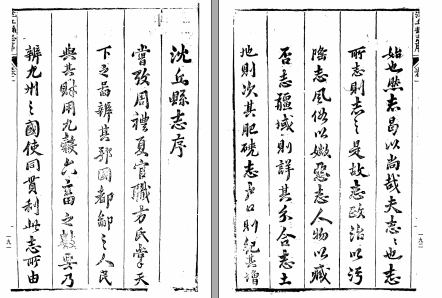 沈丘縣志序
嘗攷周禮夏官職方氏掌天
下之圖辨其邦國都鄙之人民
與其財用九穀六畜之數要乃
辨九州之國使同貫利此志所由
始也然志曷以尚哉夫志之也志
所志則志之是故志政治以污
隆志風俗以媺惡志人物以臧
否志疆域則詳其合志土
地則次其肥磽志戶口則紀其增